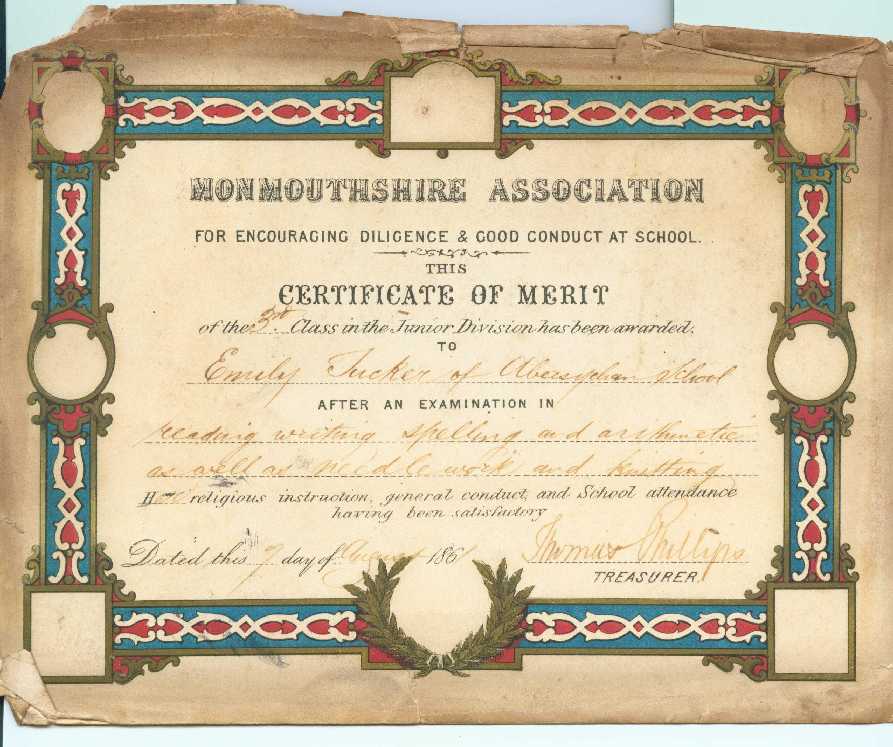 MONMOUTHSHIRE ASSOCIATION
FOR ENCOURAGING DILIGENCE & GOOD CONDUCT AT SCHOOL.
THIS
CERTIFICATE OF MERIT
of the 3rd Class in the Junior Division has been awarded.
TO
Emily Tucker of Abersychan School
AFTER AN EXAMINATION IN
reading writing spelling and arithmetic
as well as needle work and knitting
Her religious instruction, general conduct, and School attendance
having been satisfactory
Dated this 9 day of August 1861
Thomas Phillips
TREASURER.